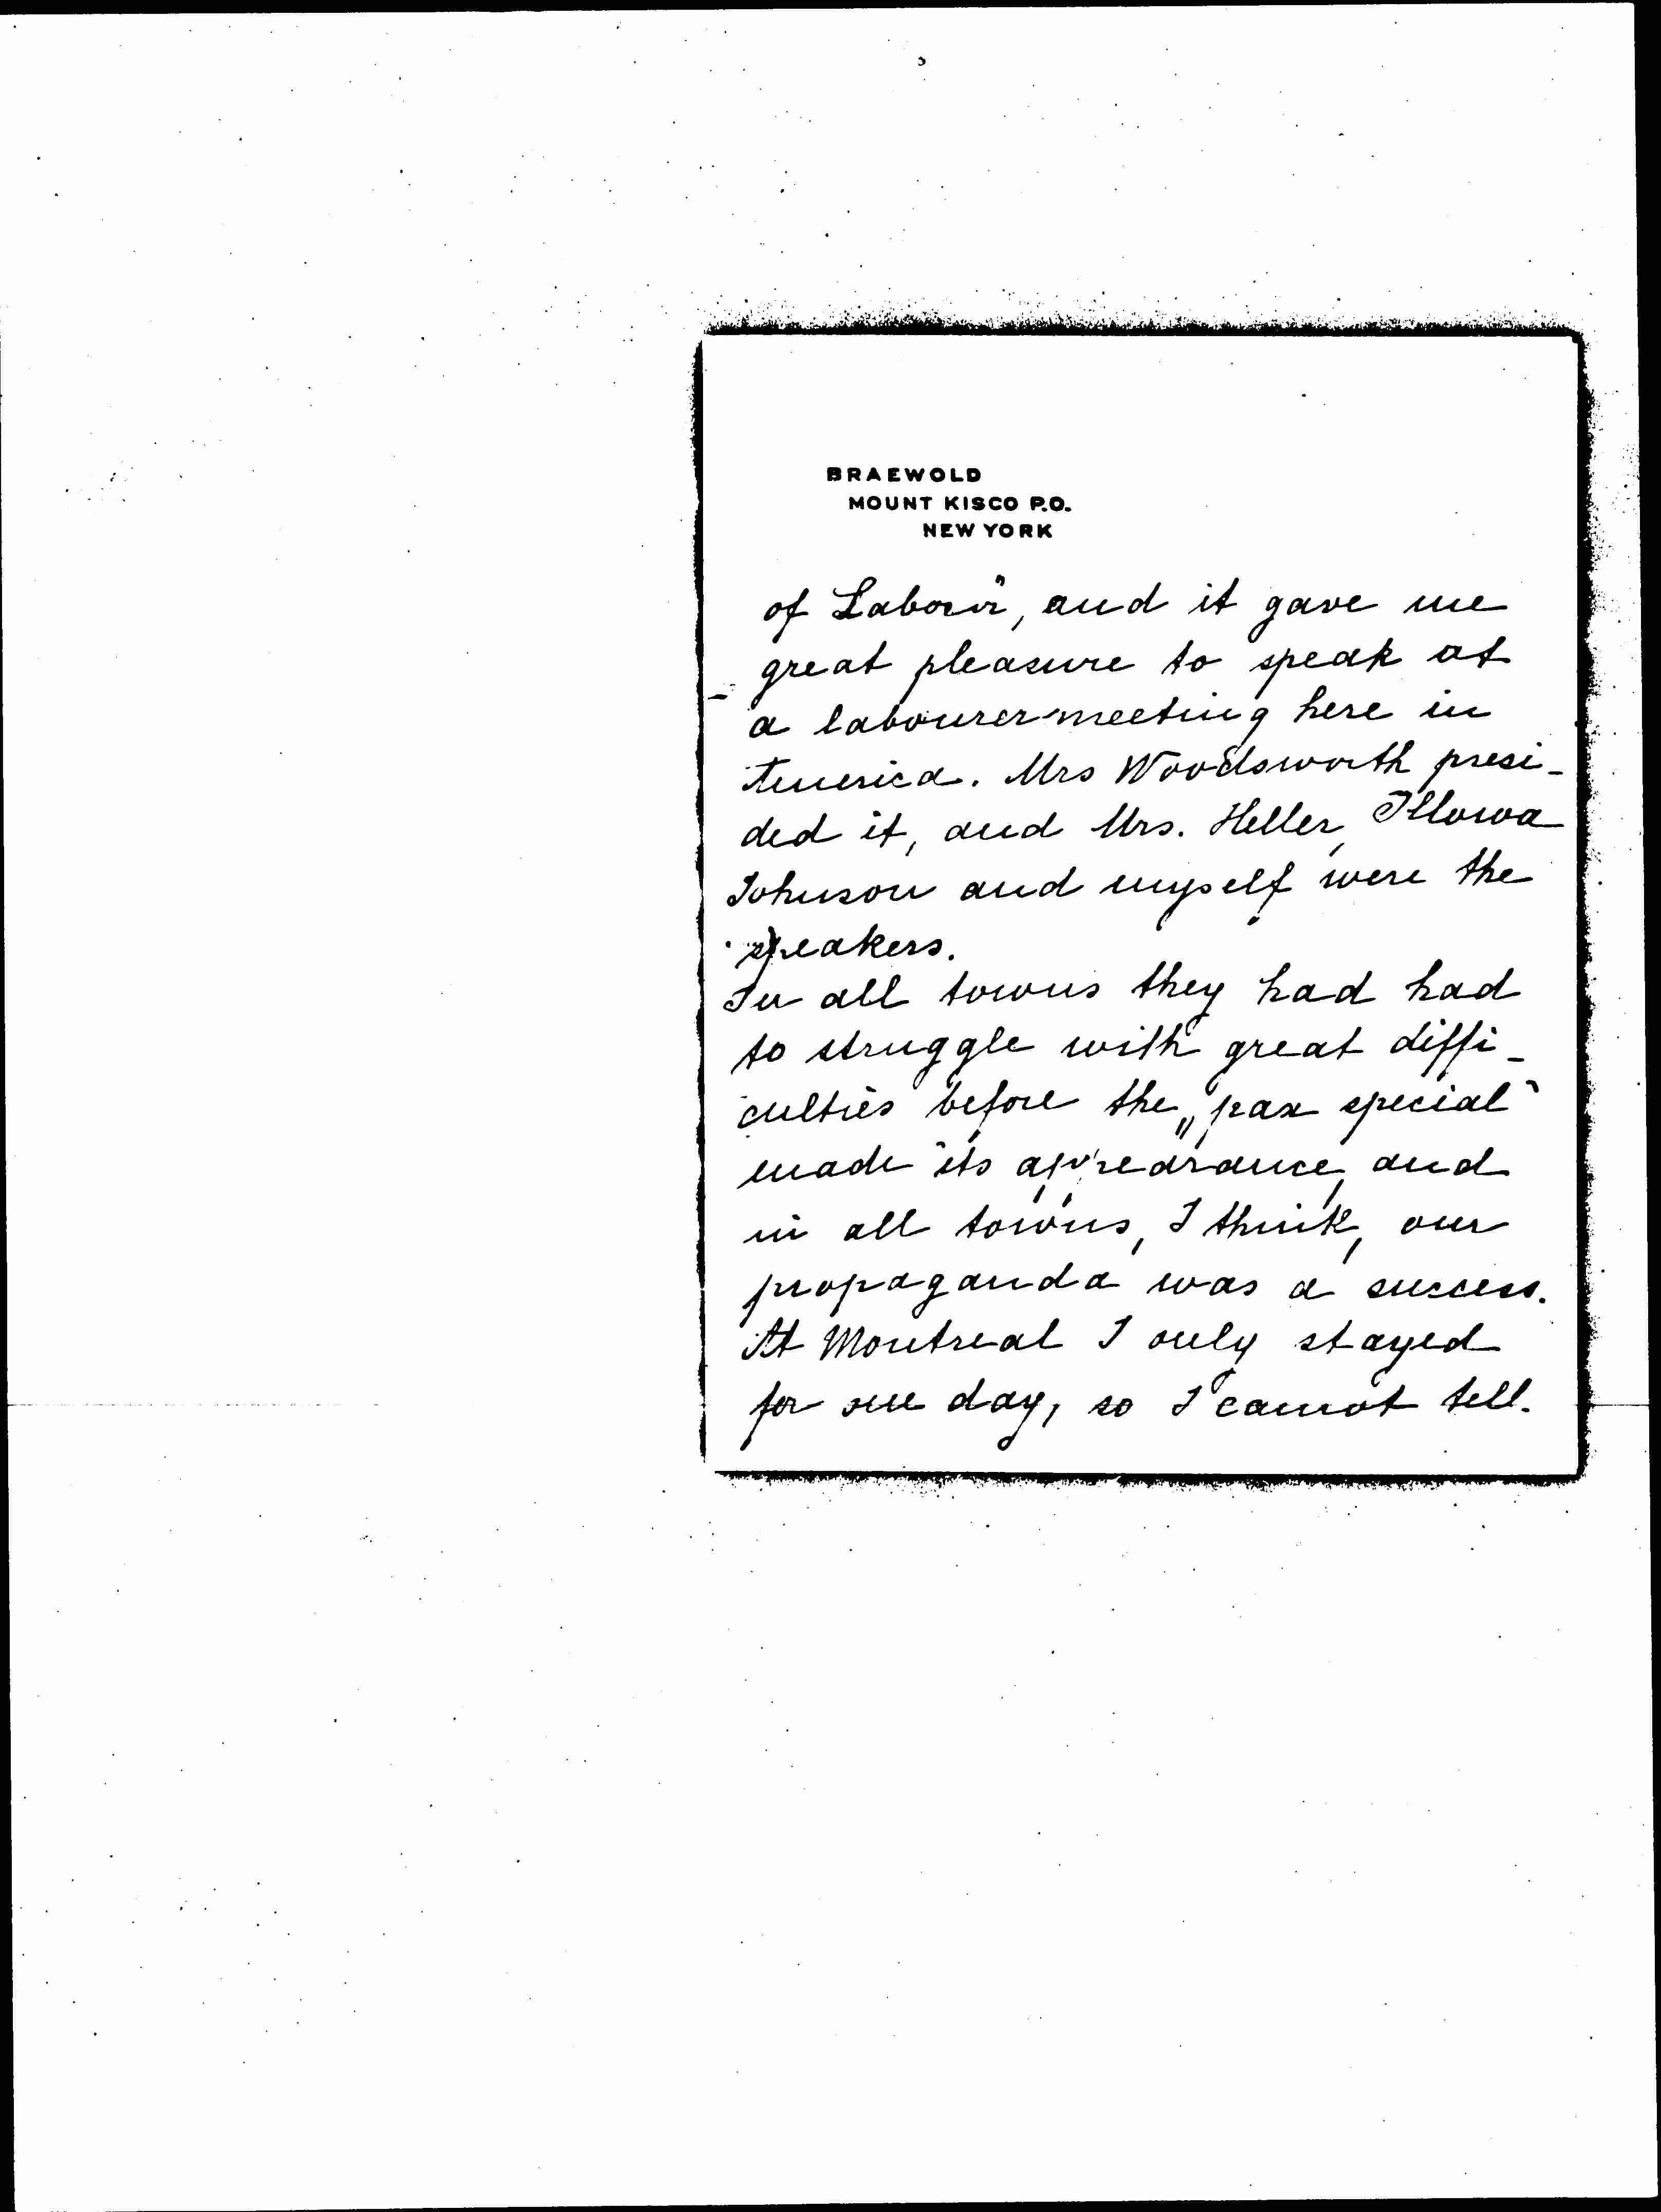 BRAEWOLD
MOUNT KISCO P.O.
NEW YORK
of Labour", and it gave me
great pleasure to speak at
a labourer-meeting here in
America. Mrs Woodsworth presi-
ded it, and Mrs. Heller, Illowa
Johnson and myself were the
speakers.
In all towns they had had
to struggle with great diffi-
culties before the „pax special"
made its appearance, and
in all towns, I think, our
propaganda was a success.
At Montreal I only stayed
for one day, so I cannot tell.